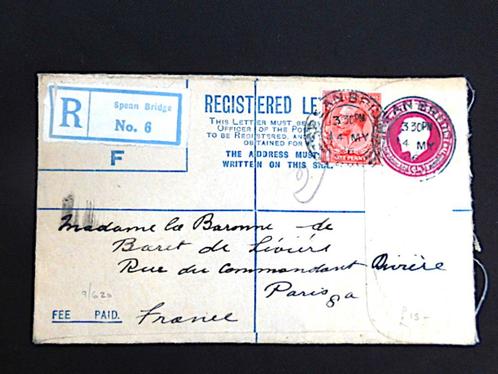 R
Spean Bridge
No. 6
F
REGISTERED LE
THIS LETTER MUST BE
OFFICER OF THE POS
TO BE REGISTERED, AND
OBTAINED FOR
THE ADDRESS MUST
WRITTEN ON THIS SIDE.
SPEAN BRIDGE
3 30PM
14 MY
ONE PENNY
SPEAN BRIDGE
3 30PM
14 MY
Madame la Baronne de
Baret de
Rue du Commandant Rivière
Paris 8a
France
9/620
FEE PAID.
£15-